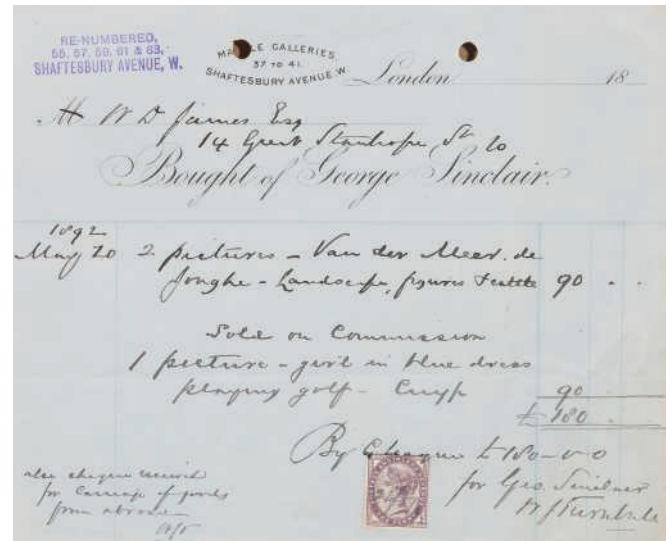 RE-NUMBERED,
55, 57, 59, 61 & 63,
SHAFTESBURY AVENUE, W.
MARBLE GALLERIES
37 TO 41
SHAFTESBURY AVENUE W
London 18
W D James Esq
14 Great Stanhope St
Bought of George Sinclair.
1892
May 20 2 pictures - Van der Meer. de
Jonghe - Landscape, figures & cattle 90 . .
Sold on Commission
1 picture - girl in blue dress
playing golf - Cuyp 90
£ 180 .
By Cheque £180-0-0
also cheque received
for Geo. Sinclair
for carriage of goods
from abroad